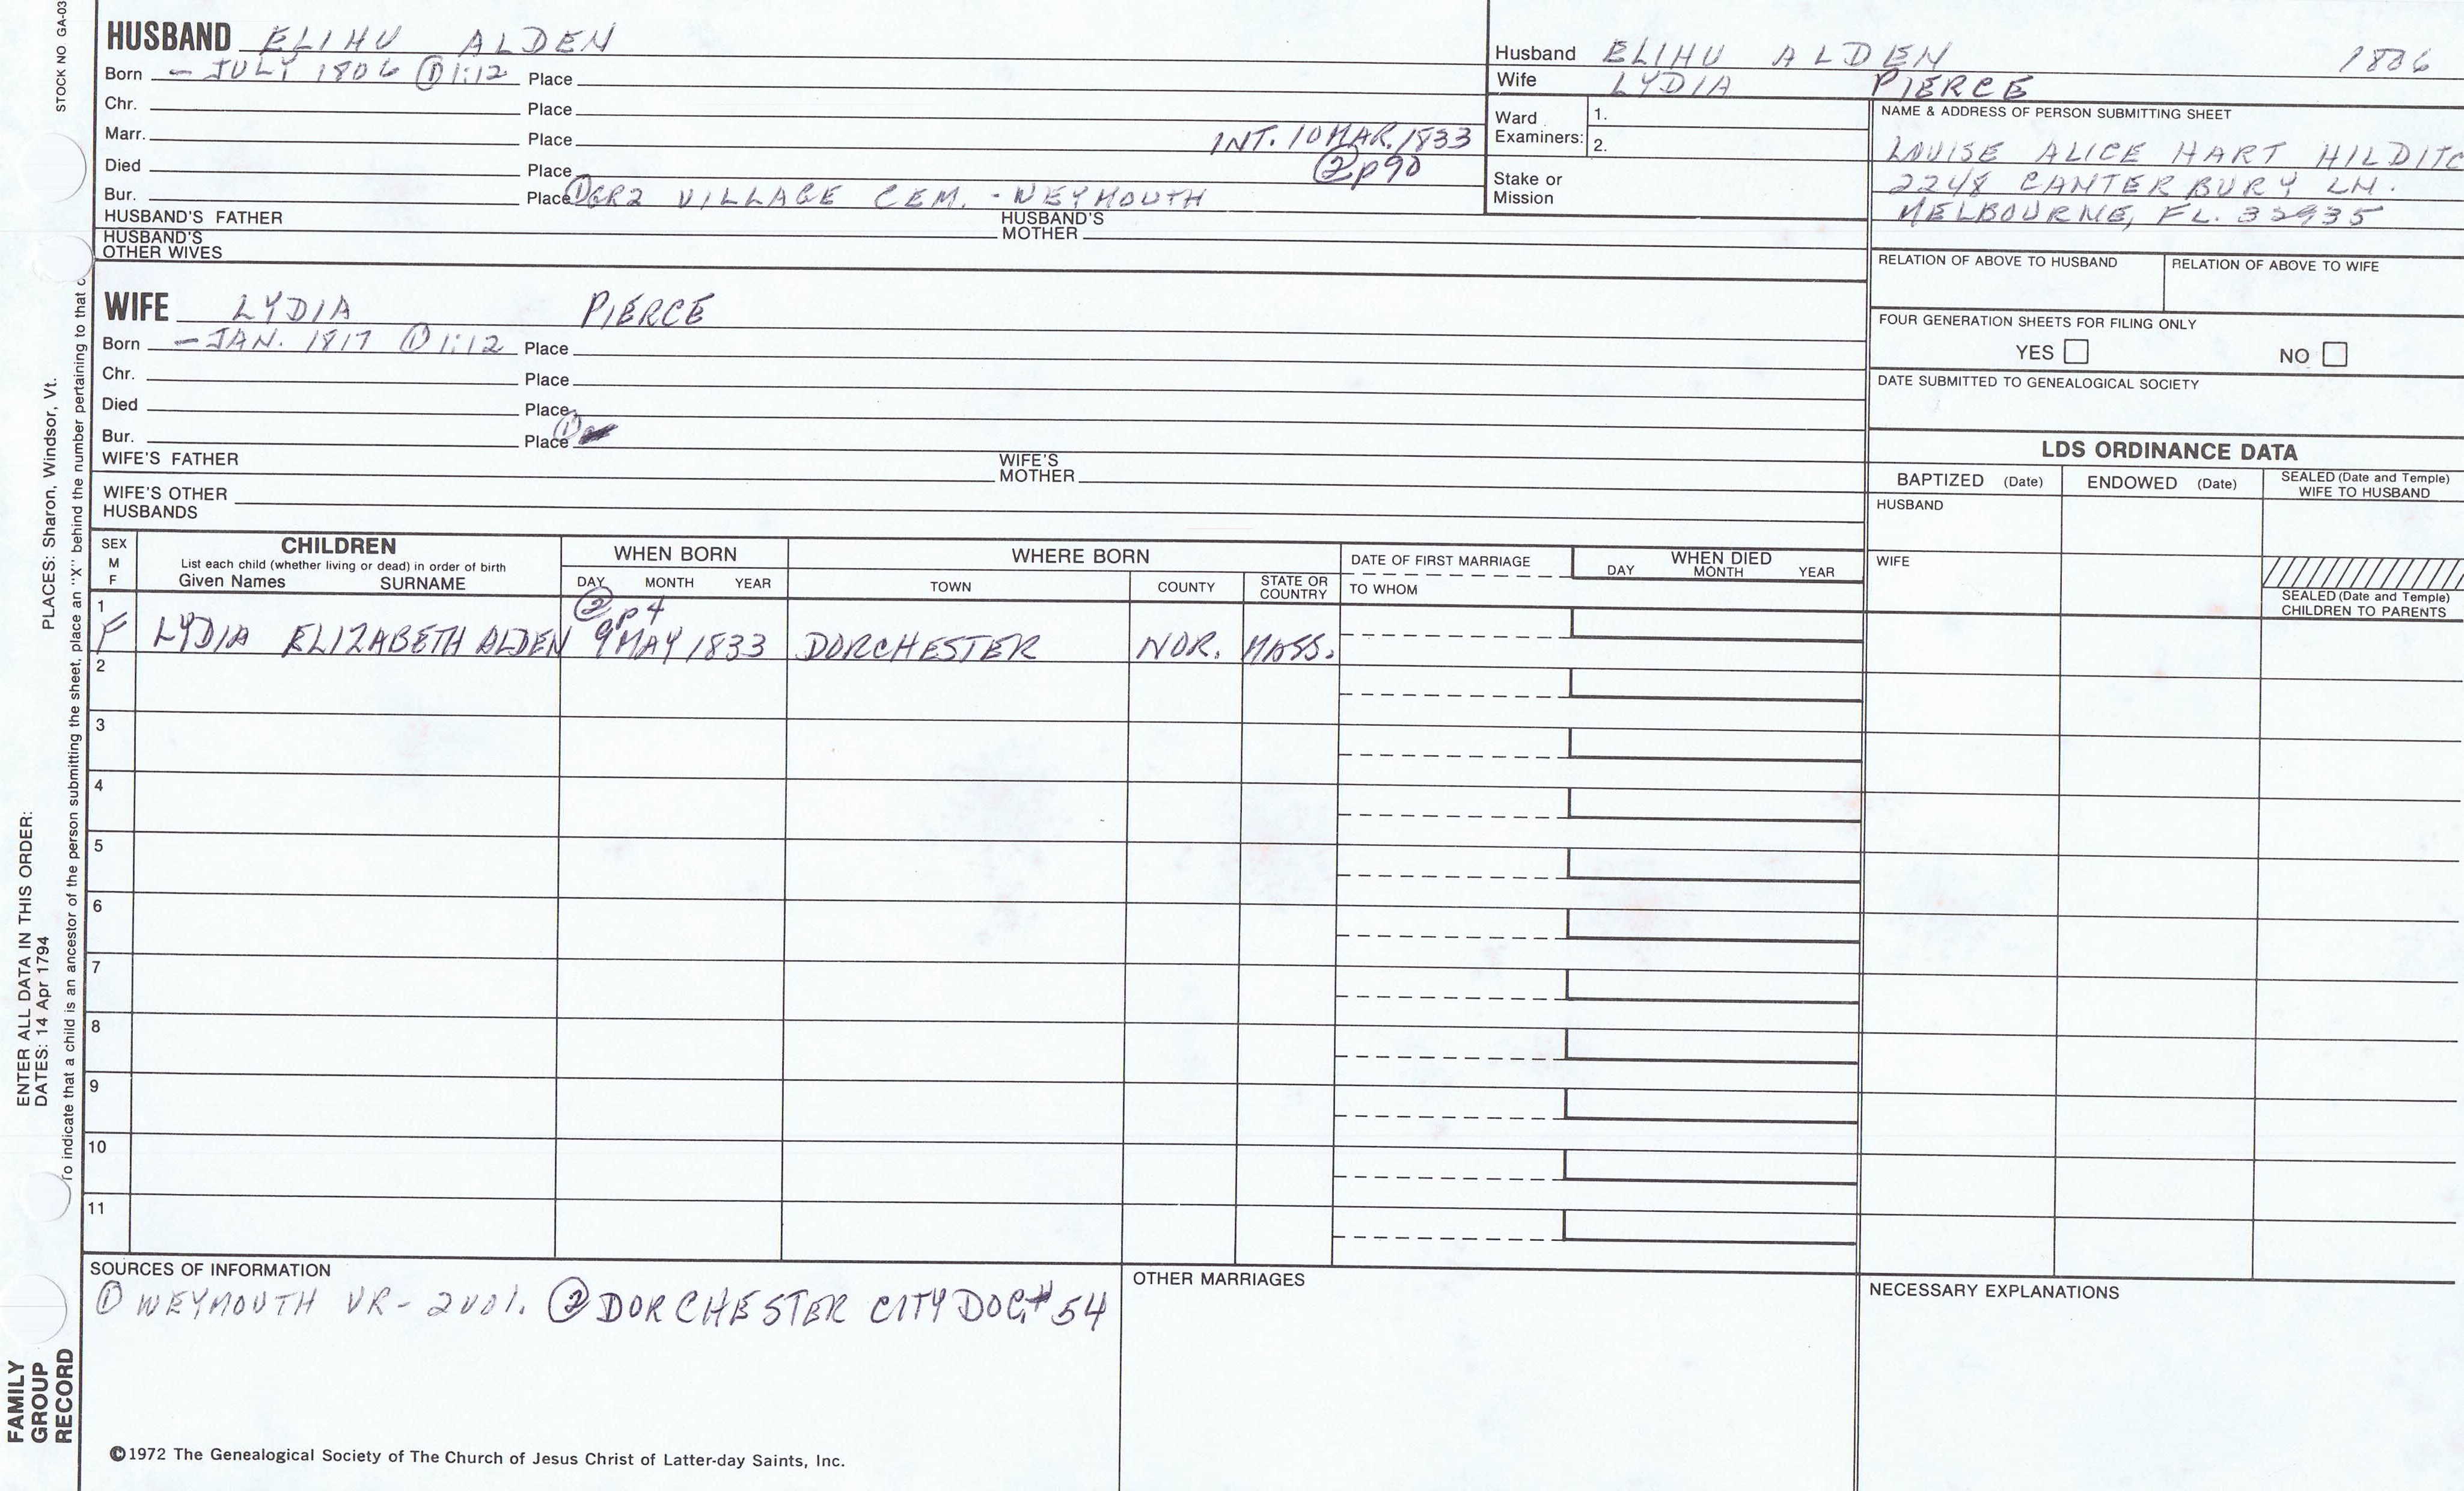 STOCK NO GA-03
HUSBAND ELIHU ALDEN
Born - JULY 1806 ① 1:12 Place
Chr. Place
Marr. Place INT. 10 MAR. 1833
Died Place ② p 90
Bur. Place ① GR2 VILLAGE CEM. - WEYMOUTH
HUSBAND'S FATHER HUSBAND'S MOTHER
HUSBAND'S OTHER WIVES
Husband ELIHU ALDEN 1806
Wife LYDIA PIERCE
Ward Examiners: 1.
2.
Stake or Mission
NAME & ADDRESS OF PERSON SUBMITTING SHEET
LOUISE ALICE HART HILDITC
2248 CANTERBURY LN.
MELBOURNE, FL. 32935
RELATION OF ABOVE TO HUSBAND RELATION OF ABOVE TO WIFE
FOUR GENERATION SHEETS FOR FILING ONLY
YES NO
DATE SUBMITTED TO GENEALOGICAL SOCIETY
WIFE LYDIA PIERCE
Born - JAN. 1817 ① 1:12 Place
Chr. Place
Died Place
Bur. Place ①
WIFE'S FATHER WIFE'S MOTHER
WIFE'S OTHER HUSBANDS
LDS ORDINANCE DATA
BAPTIZED (Date) ENDOWED (Date) SEALED (Date and Temple) WIFE TO HUSBAND
HUSBAND
WIFE
SEALED (Date and Temple) CHILDREN TO PARENTS
SEX M F
CHILDREN
List each child (whether living or dead) in order of birth
Given Names SURNAME
WHEN BORN
DAY MONTH YEAR
WHERE BORN
TOWN COUNTY STATE OR COUNTRY
DATE OF FIRST MARRIAGE
TO WHOM
WHEN DIED
DAY MONTH YEAR
② p 4
1 F LYDIA ELIZABETH ALDEN 9 MAY 1833 DORCHESTER NOR. MASS.
2
3
4
5
6
7
8
9
10
11
SOURCES OF INFORMATION
① WEYMOUTH VR - 2 VOL. ② DORCHESTER CITY DOC # 54
OTHER MARRIAGES
NECESSARY EXPLANATIONS
©1972 The Genealogical Society of The Church of Jesus Christ of Latter-day Saints, Inc.
ENTER ALL DATA IN THIS ORDER:
DATES: 14 Apr 1794 PLACES: Sharon, Windsor, Vt.
To indicate that a child is an ancestor of the person submitting the sheet, place an "X" behind the number pertaining to that c
FAMILY
GROUP
RECORD